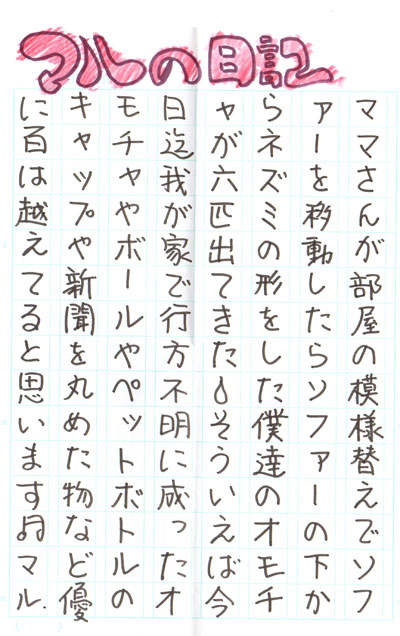 マルの日記
ママさんが部屋の模様替えでソフ
ァーを移動したらソファーの下か
らネズミの形をした僕達のオモチ
ャが六匹出てきた💧そういえば今
日迄我が家で行方不明に成ったオ
モチャやボールやペットボトルの
キャップや新聞を丸めた物など優
に百は越えてると思います♫マル.